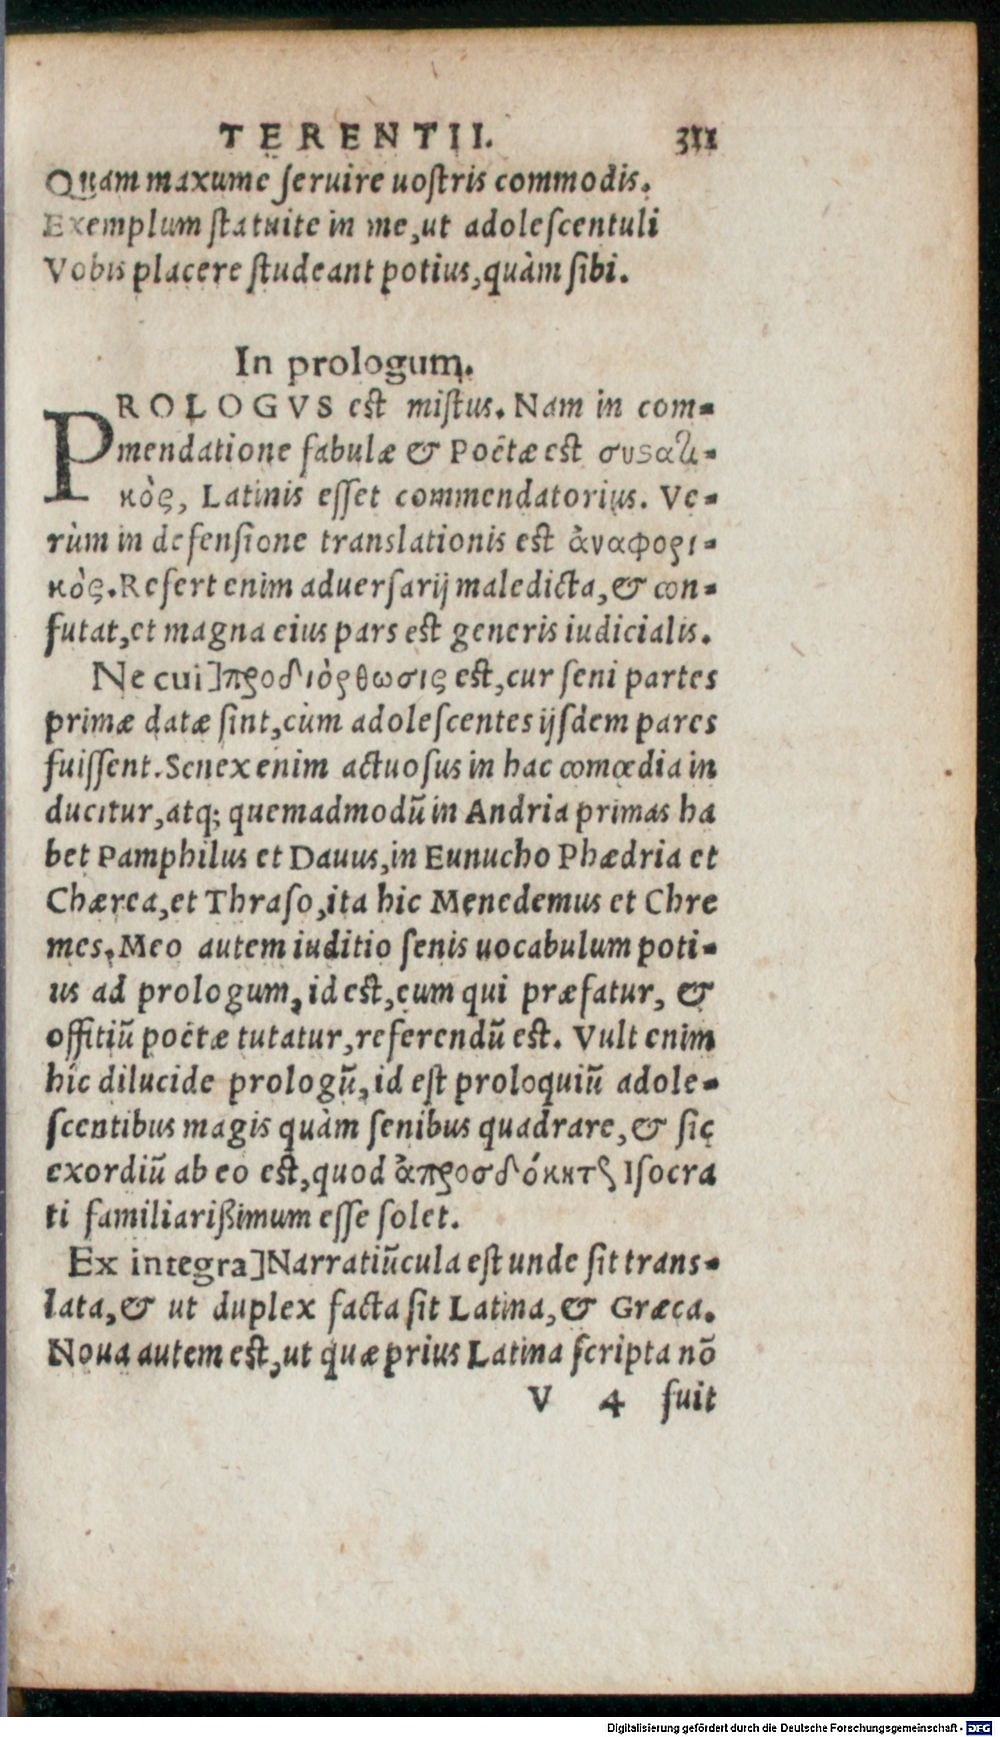 TERENTII. 311
Quam maxume seruire uostris commodis.
Exemplum statuite in me, ut adolescentuli
Vobis placere studeant potius, quàm sibi.
In prologum.
PROLOGVS est mistus. Nam in com-
mendatione fabulæ & Poëtæ est συϛατι-
κὸς, Latinis esset commendatorius. Ve-
rùm in defensione translationis est ἀναφορι-
κὸς. Refert enim aduersarij maledicta, & con-
futat, et magna eius pars est generis iudicialis.
Ne cui] προδιόρθωσις est, cur seni partes
primæ datæ sint, cùm adolescentes ijsdem pares
fuissent. Senex enim actuosus in hac comœdia in
ducitur, atq; quemadmodũ in Andria primas ha
bet Pamphilus et Dauus, in Eunucho Phædria et
Chærea, et Thraso, ita hic Menedemus et Chre
mes. Meo autem iuditio senis uocabulum poti-
us ad prologum, id est, eum qui præfatur, &
offitiũ poëtæ tutatur, referendũ est. Vult enim
hic dilucide prologũ, id est proloquiũ adole-
scentibus magis quàm senibus quadrare, & sic
exordiũ ab eo est, quod ἀπροσδόκητον Isocra
ti familiarißimum esse solet.
Ex integra] Narratiũcula est unde sit trans-
lata, & ut duplex facta sit Latina, & Græca.
Noua autem est, ut quæ prius Latina scripta nõ
V 4 fuit
Digitalisierung gefördert durch die Deutsche Forschungsgemeinschaft - DFG